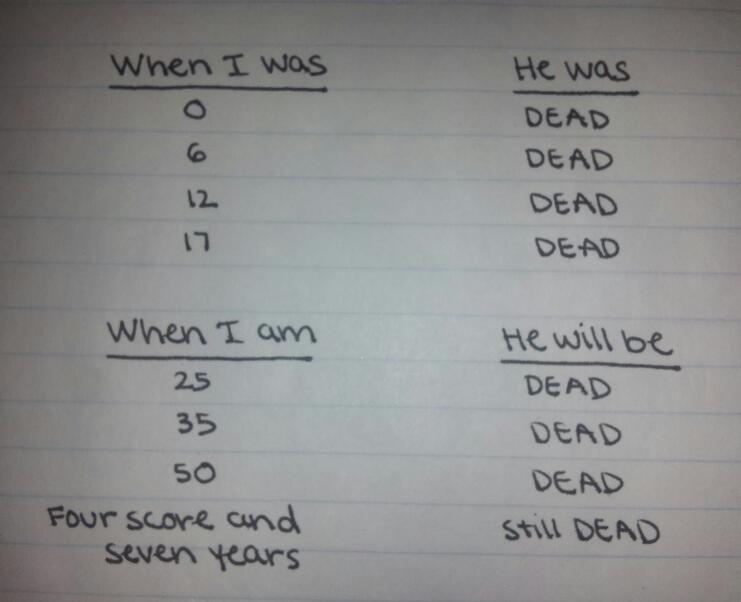 When I was He was
0 DEAD
6 DEAD
12 DEAD
17 DEAD
When I am He will be
25 DEAD
35 DEAD
50 DEAD
Four score and still DEAD
seven years